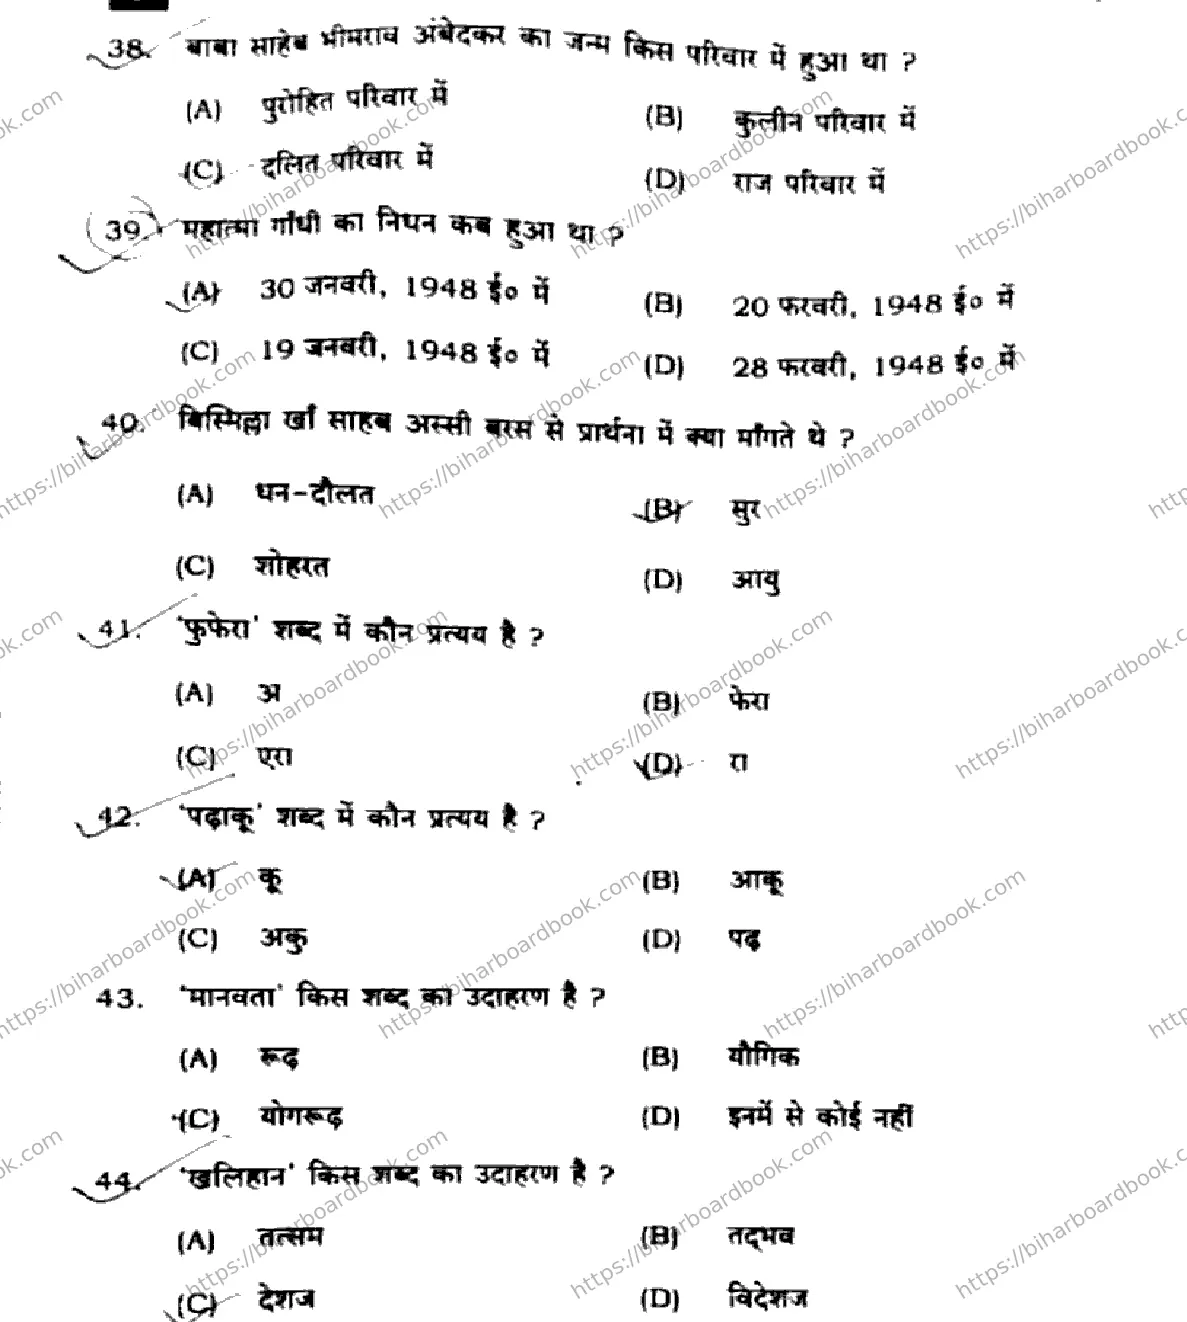 38. बाबा साहेब भीमराव अंबेदकर का जन्म किस परिवार में हुआ था ?
(A) पुरोहित परिवार में (B) कुलीन परिवार में
(C) दलित परिवार में (D) राज परिवार में
39. महात्मा गाँधी का निधन कब हुआ था ?
(A) 30 जनवरी, 1948 ई० में (B) 20 फरवरी, 1948 ई० में
(C) 19 जनवरी, 1948 ई० में (D) 28 फरवरी, 1948 ई० में
40. बिस्मिल्ला खाँ साहब अस्सी बरस से प्रार्थना में क्या माँगते थे ?
(A) धन-दौलत (B) सुर
(C) शोहरत (D) आयु
41. 'फुफेरा' शब्द में कौन प्रत्यय है ?
(A) अ (B) फेरा
(C) एरा (D) रा
42. 'पढ़ाकू' शब्द में कौन प्रत्यय है ?
(A) कू (B) आकू
(C) अकु (D) पढ़
43. 'मानवता' किस शब्द का उदाहरण है ?
(A) रूढ़ (B) यौगिक
(C) योगरूढ़ (D) इनमें से कोई नहीं
44. 'खलिहान' किस शब्द का उदाहरण है ?
(A) तत्सम (B) तद्भव
(C) देशज (D) विदेशज
https://biharboardbook.com